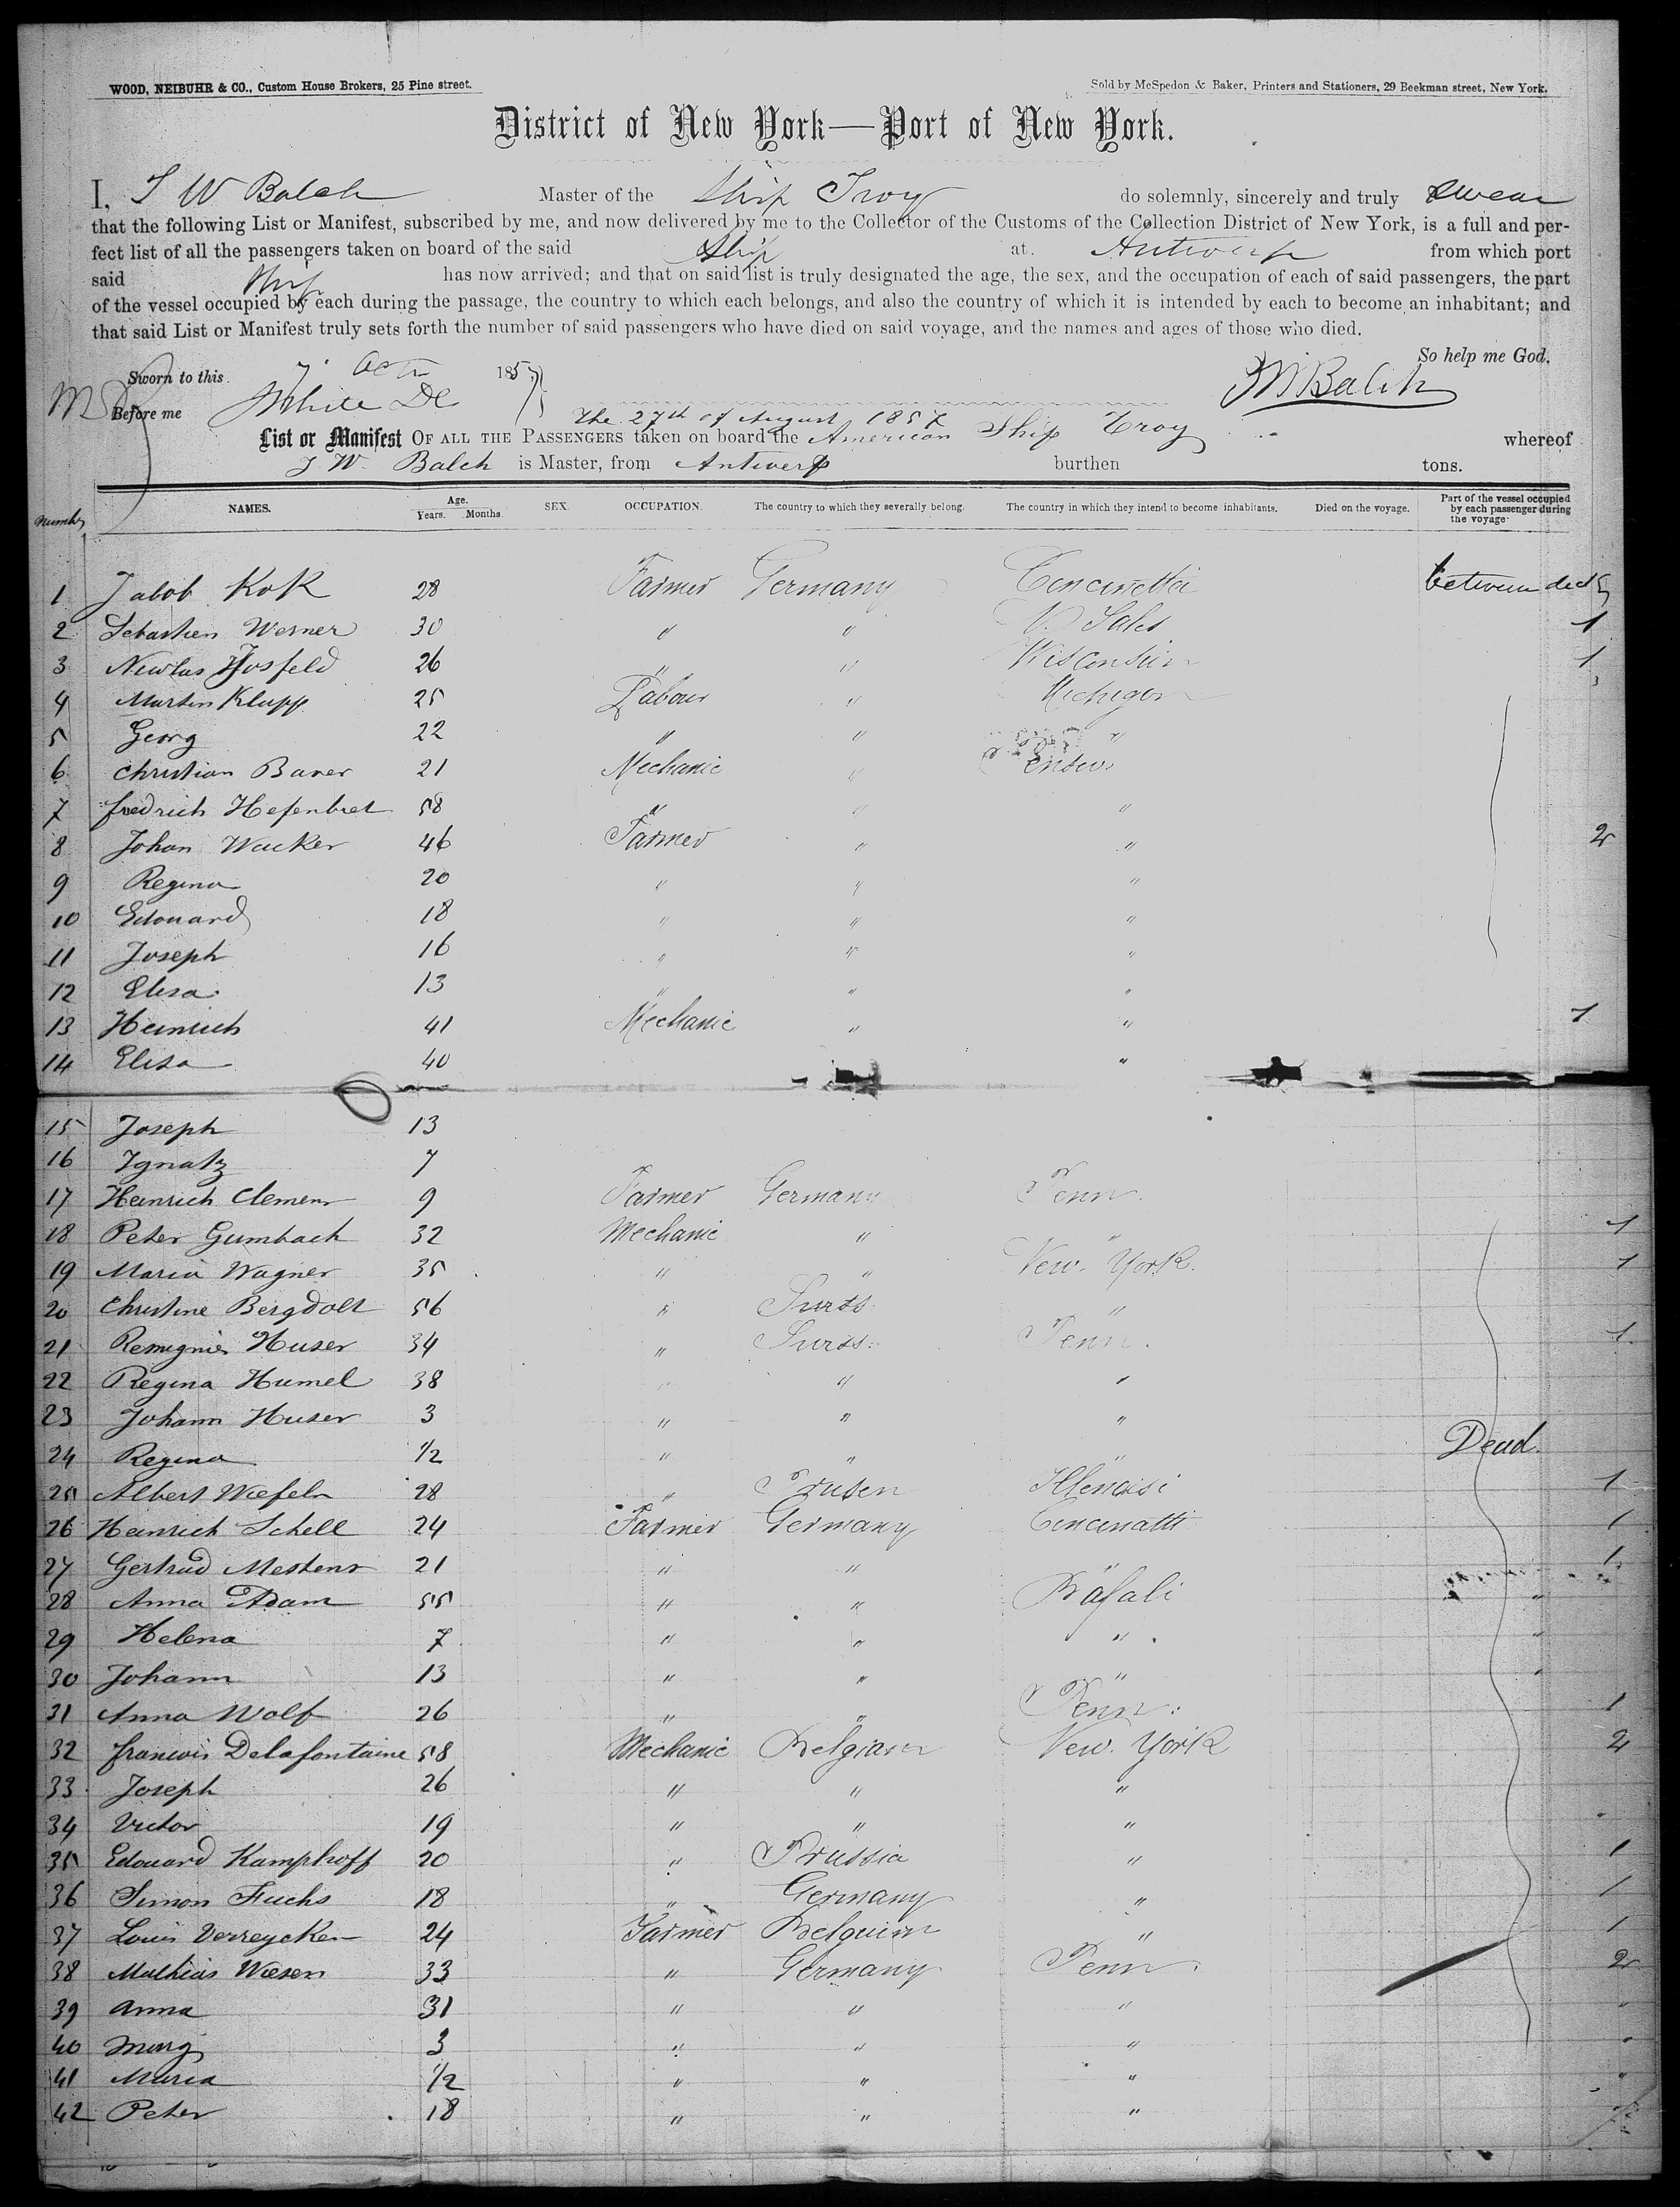 WOOD, NEIBUHR & CO., Custom House Brokers, 25 Pine street.
Sold by McSpedon & Baker, Printers and Stationers, 29 Beekman street, New York.
District of New York—Port of New York.
I, J W Balch Master of the Ship Troy do solemnly, sincerely and truly swear
that the following List or Manifest, subscribed by me, and now delivered by me to the Collector of the Customs of the Collection District of New York, is a full and per-
fect list of all the passengers taken on board of the said Ship at Antwerp from which port
said Ship has now arrived; and that on said list is truly designated the age, the sex, and the occupation of each of said passengers, the part
of the vessel occupied by each during the passage, the country to which each belongs, and also the country of which it is intended by each to become an inhabitant; and
that said List or Manifest truly sets forth the number of said passengers who have died on said voyage, and the names and ages of those who died.
So help me God.
Sworn to this 7 Octr 1857
JW Balch
Before me
the 27th of August 1857
List or Manifest OF ALL THE PASSENGERS taken on board the American Ship Troy whereof
J W. Balch is Master, from Antwerp burthen tons.
Number NAMES. Age. Years. Months. SEX. OCCUPATION. The country to which they severally belong. The country in which they intend to become inhabitants. Died on the voyage. Part of the vessel occupied by each passenger during the voyage
1 Jakob Kok 28 Farmer Germany Cencinettei between deck
2 Sebastien Werner 30 " " 1
3 Hosfeld 26 " " Wisconsin 1
4 Martin Klupp 25 Labour " Michigon
5 Georg 22 " " "
6 Christian Baver 21 Mechanic "
7 fredrich Hefenbret 58 " " "
8 Johan Wacker 46 Farmer " " 2
9 Regina 20 " " "
10 Edouard 18 " " "
11 Joseph 16 " " "
12 Elisa 13 " " "
13 Heinrich 41 Mechanic " " 1
14 Elisa 40 "
15 Joseph 13
16 Ignatz 7
17 Heinrich Clemens 9 Farmer Germany Penn.
18 Peter Gumbach 32 Mechanic " " 1
19 Maria Wagner 35 " " New. York. 1
20 Christine Bergdolt 56 " "
21 Huser 34 " Penn. 1
22 Regina Humel 38 " " "
23 Johann Huser 3 " " "
24 Regina 1/2 " " " Dead.
25 Albert Wiefeln 28 " Prusen Illenoisi 1
26 Heinrich Schell 24 Farmer Germany Cincinatti 1
27 Gertrud Mestens 21 " " " 1
28 Anna Adam 55 " " Bäfali "
29 Helena 7 " " " "
30 Johann 13 " " " "
31 Anna Wolf 26 " " Penn. 1
32 francois Delafontaine 58 Mechanic Belgiaen New. York 2
33 Joseph 26 " " "
34 Victor 19 " " "
35 Edouard Kamphoff 20 " Prussia " 1
36 Simon Fuchs 18 " Germany " 1
37 Louis Verreycken 24 Farmer Belguim " 1
38 Mathias Wiesen 33 " Germany Penn. 2
39 Anna 31 " " " "
40 3 " " " "
41 Maria 1/2 " " " "
42 Peter 18 " " "